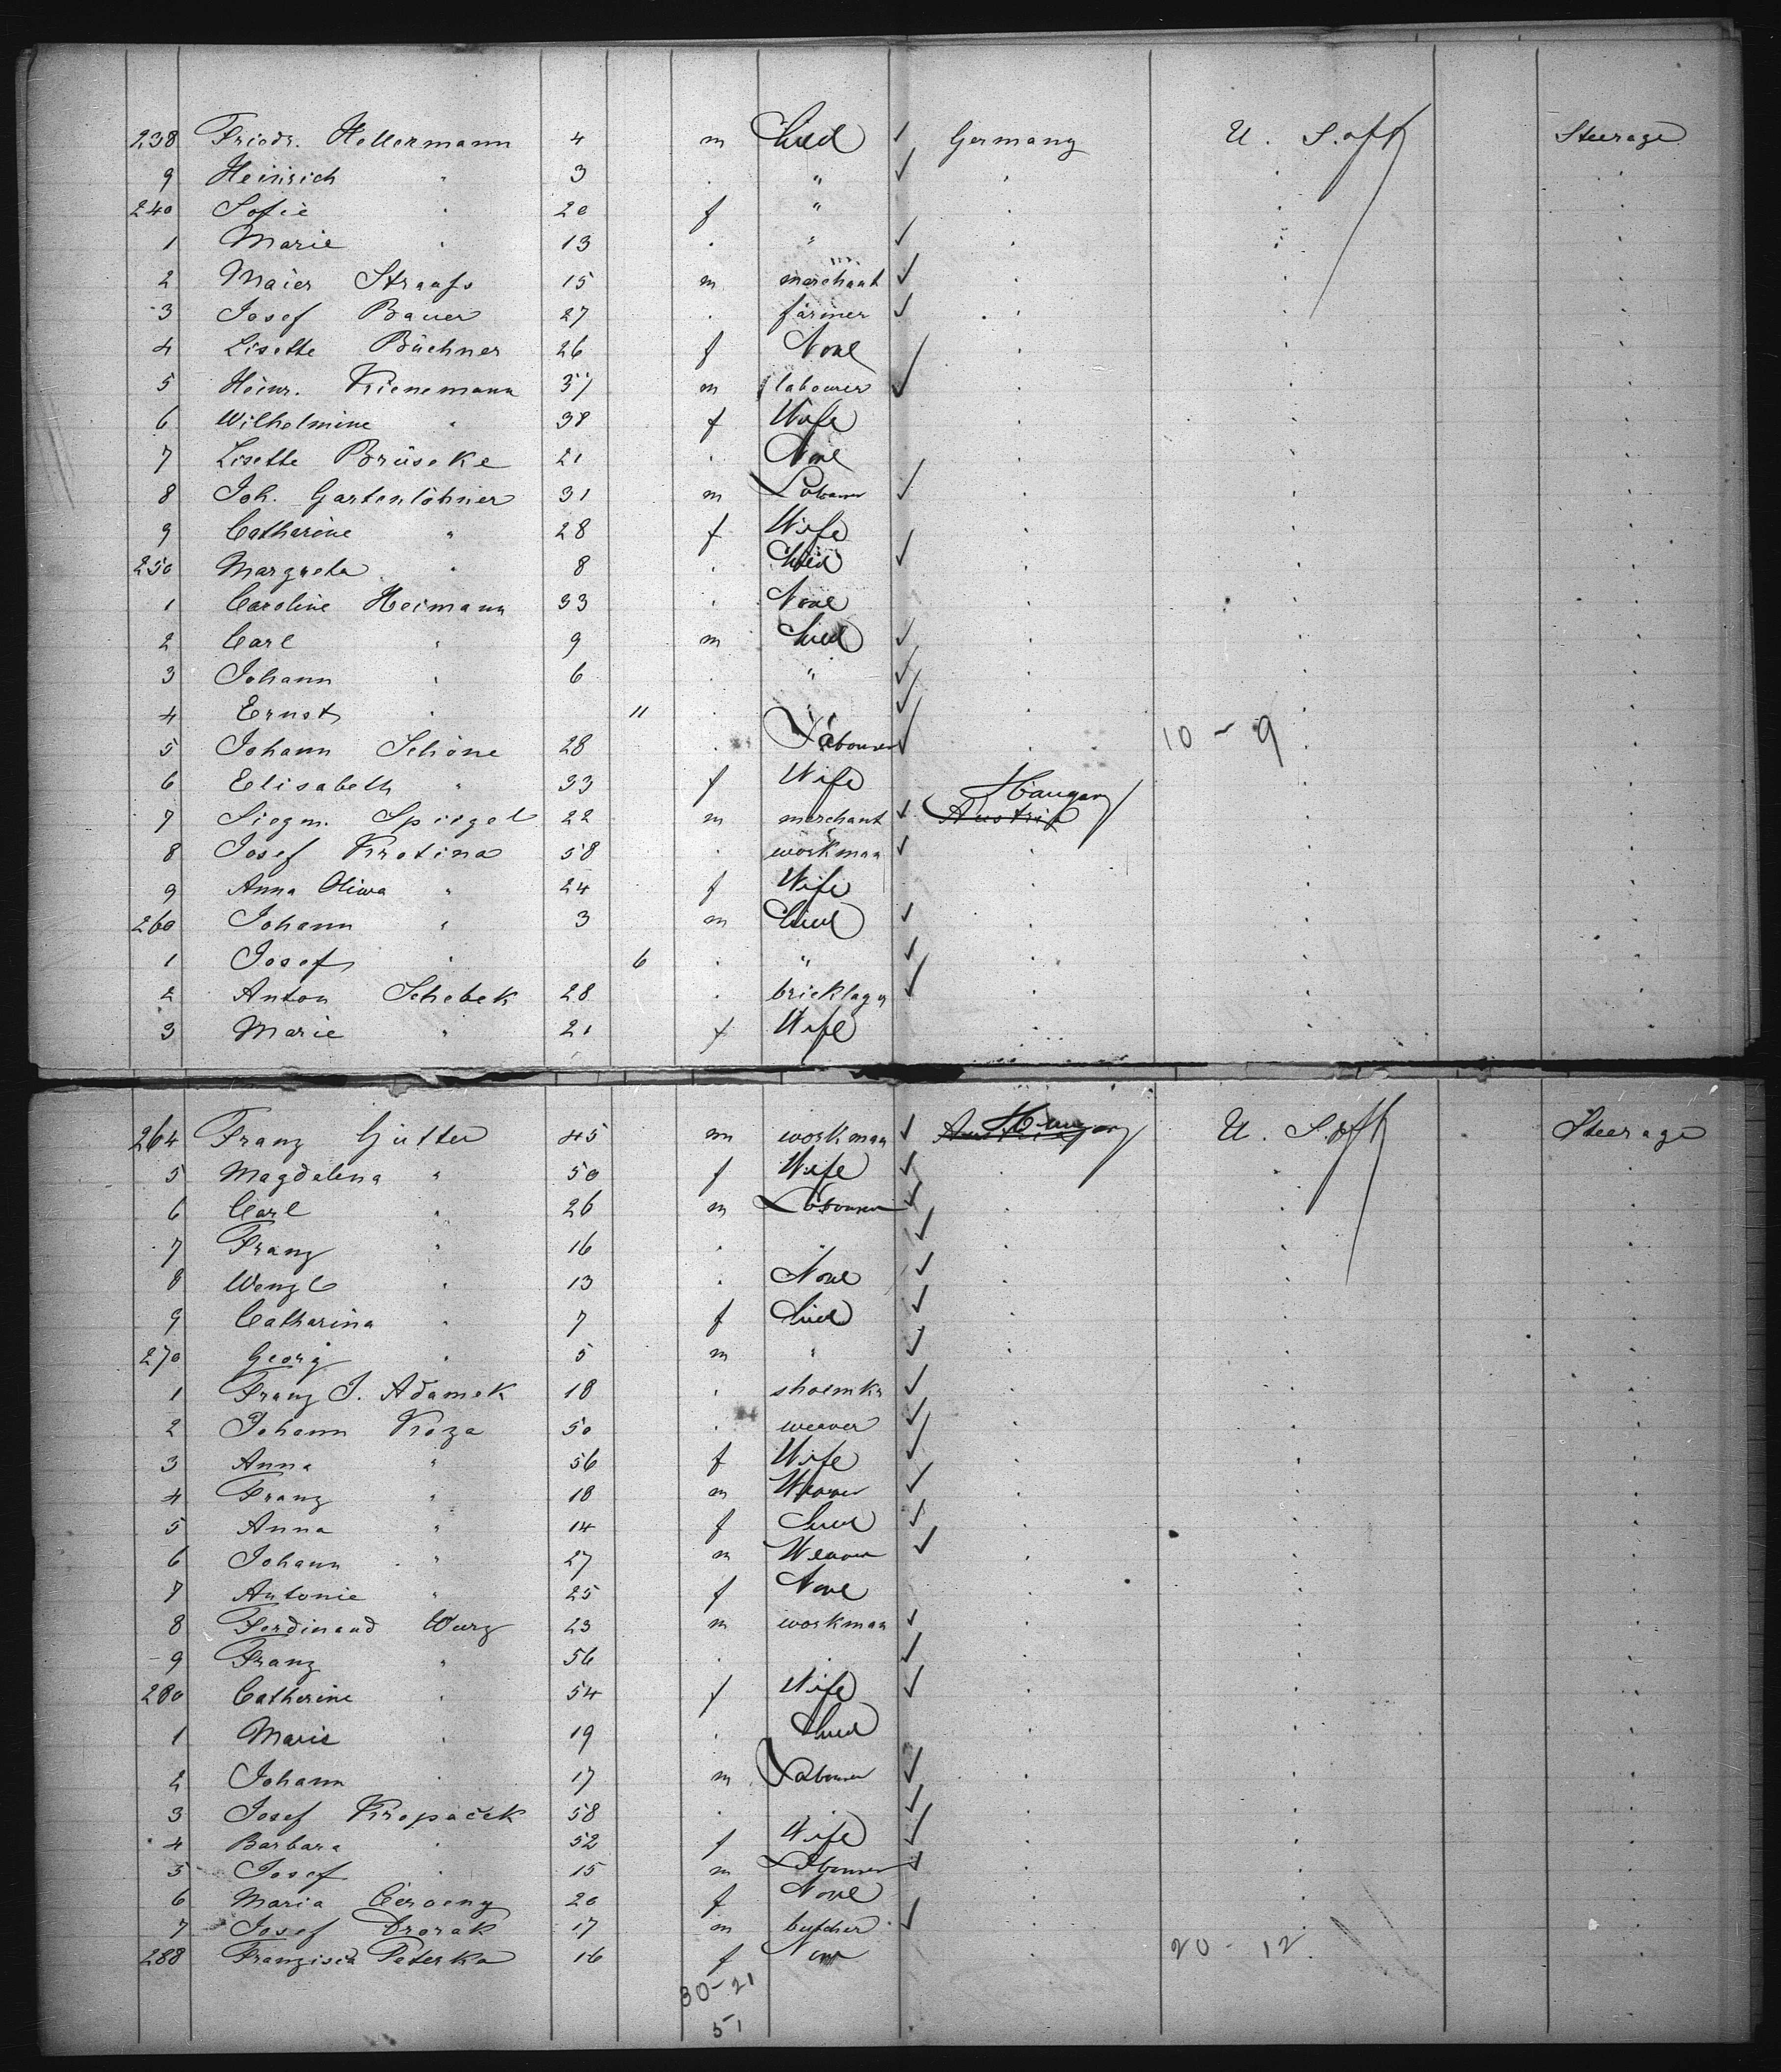 238 Friedr. Hellermann 4 m Child ✓ Germany U. S. of A Steerage
9 Heinrich " 3 . " ✓ . . .
240 Sofie " 20 f " . . .
1 Marie " 13 . " ✓ . . .
2 Maier Strauss 15 m merchant ✓ . . .
3 Josef Bauer 27 . farmer ✓ . . .
4 Lisette Büchner 26 f None . . .
5 Heinr. Krienemann 37 m labourer ✓ . . .
6 Wilhelmine " 38 f Wife . . .
7 Lisette Brüseke 21 . None . . .
8 Joh. Gartenlöhner 31 m Labourer ✓ . . .
9 Catharine " 28 f Wife . . .
250 Margreta " 8 . Child ✓ . . .
1 Caroline Heimann 33 . None . . .
2 Carl " 9 m Child ✓ . . .
3 Johann " 6 . " ✓ . . .
4 Ernst " 11 . " ✓ . . .
5 Johann Schöne 28 . Labourer ✓ . 10 - 9 . .
6 Elisabeth " 33 f Wife . . .
7 Siegm. Spiegel 22 m merchant ✓ Austria Hungary . .
8 Josef Krotina 58 . workman ✓ . . .
9 Anna Oliwa " 24 f Wife . . .
260 Johann " 3 m Child ✓ . . .
1 Josef " 6 . " ✓ . . .
2 Anton Schebek 28 . bricklayer ✓ . . .
3 Marie " 21 f Wife . . .
264 Franz Gütter 45 m workman ✓ Austria Hungary U. S. of A Steerage
5 Magdalena " 50 f Wife ✓ . . .
6 Carl " 26 m Labourer ✓ . . .
7 Franz " 16 . . ✓ . . .
8 Wenzl " 13 . None ✓ . . .
9 Catharina " 7 f Child ✓ . . .
270 Georg " 5 m " ✓ . . .
1 Franz J. Adamek 18 . shoemkr ✓ . . .
2 Johann Koza 50 . weaver ✓ . . .
3 Anna " 56 f Wife ✓ . . .
4 Franz " 18 m Weaver ✓ . . .
5 Anna " 14 f Child ✓ . . .
6 Johann " 27 m Weaver ✓ . . .
7 Antonie " 25 f None . . .
8 Ferdinand Wurz 23 m workman ✓ . . .
9 Franz " 56 . . ✓ . . .
280 Catherine " 54 f Wife ✓ . . .
1 Marie " 19 . Child . . .
2 Johann " 17 m Labourer ✓ . . .
3 Josef Kropaček 58 . . ✓ . . .
4 Barbara " 52 f Wife ✓ . . .
5 Josef " 15 m Labourer ✓ . . .
6 Maria 20 f None . . .
7 Josef Dvorak 17 m butcher ✓ . . .
288 Franziska Peterka 16 f None . 20 - 12
30 - 21
51